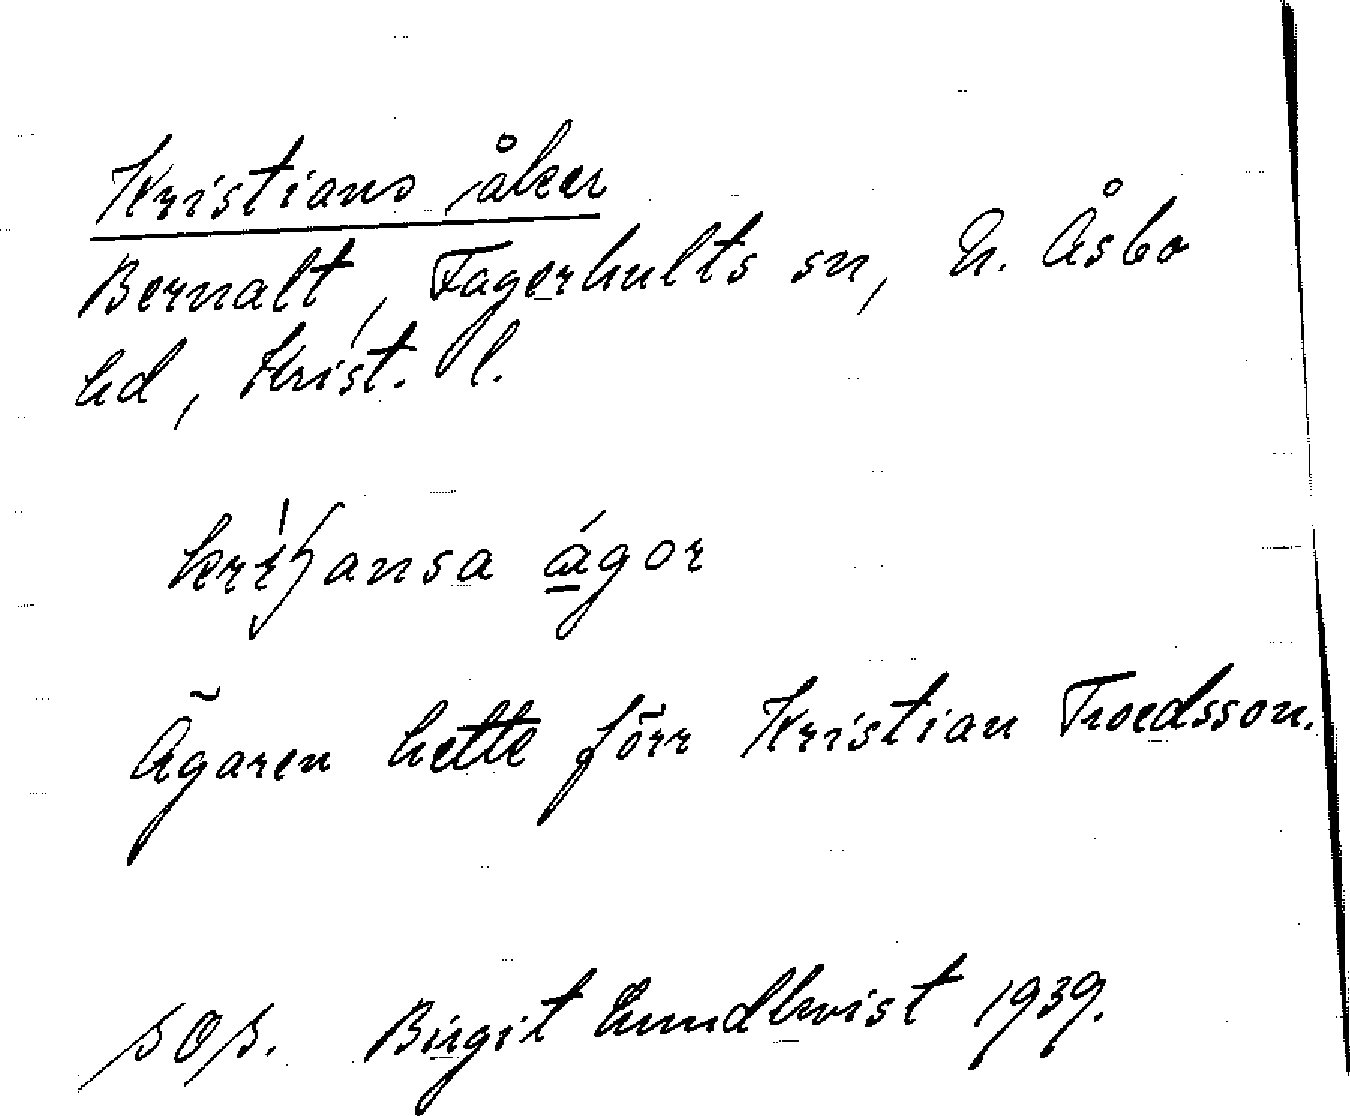 Kristians åker
Bernalt, Fagerhults sn, N. Åsbo
hd, Krist. l.
ágor
Ägaren hette förr Kristian Troedsson.
SOS. Birgit Lundkvist 1939.